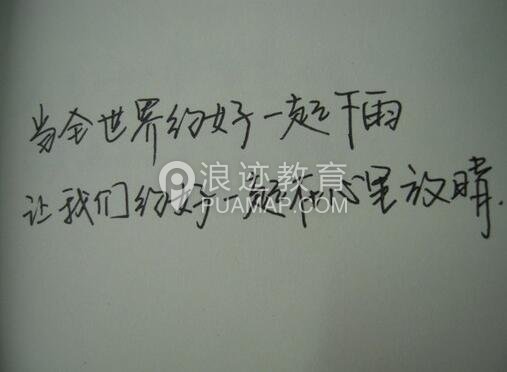 当全世界约好一起下雨
让我们约好一起在心里放晴.
浪迹教育
PUAMAP.COM